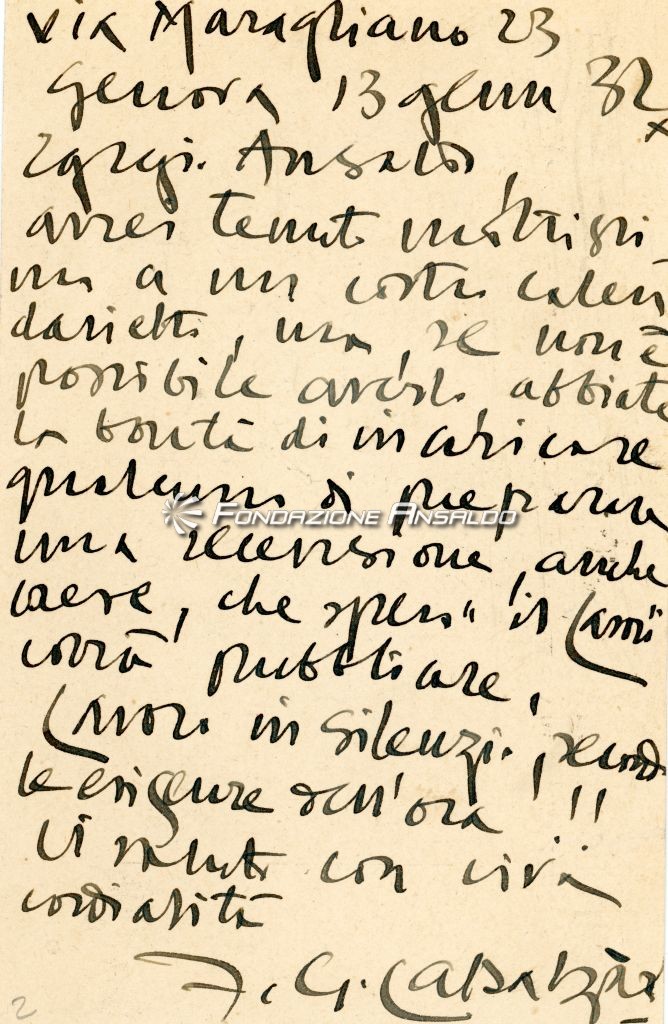 via Maragliano 23
Genova 13 genn 32
x
Egregi. Ansaldo,
avrei tenuto
ma a un vostro calen
darietto, ma, se non è
possibile averlo abbiate
la bontà di incaricare
qualcuno di preparare
una recensione, anche
breve, che spero "il Lavoro"
vorrà pubblicare,
Lavoro in silenzio, secondo
le esigenze dell'ora!!!
Vi saluto con viva
cordialità
F. G.
2
FONDAZIONE ANSALDO